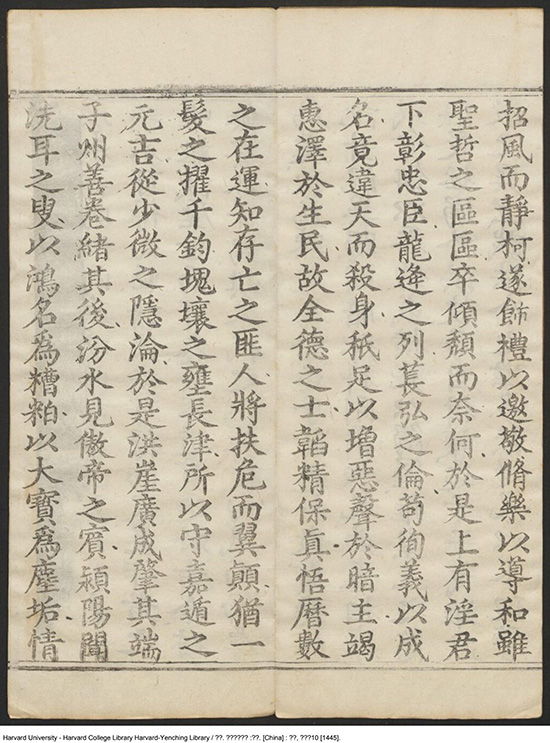 招風而靜柯遂飾禮以邀敬脩樂以導和雖
聖哲之區區卒傾頹而奈何於是上有淫君
下彰忠臣龍逄之列萇弘之倫苟徇義以成
名竟違天而殺身秖足以增惡聲於暗主竭
惠澤於生民故全德之士韜精保眞悟曆數
之在運知存亡之匪人將扶危而翼顚猶一
髮之擢千鈞塊壤之壅長津所以守嘉遁之
元吉從少微之隱淪於是洪崖廣成肇其端
子州善卷緒其後汾水見傲帝之賓潁陽聞
洗耳之叟以鴻名爲糟粕以大寳爲塵垢情
Harvard University - Harvard College Library Harvard-Yenching Library / ??. ?????? :??. [China] : ??, ???10 [1445].